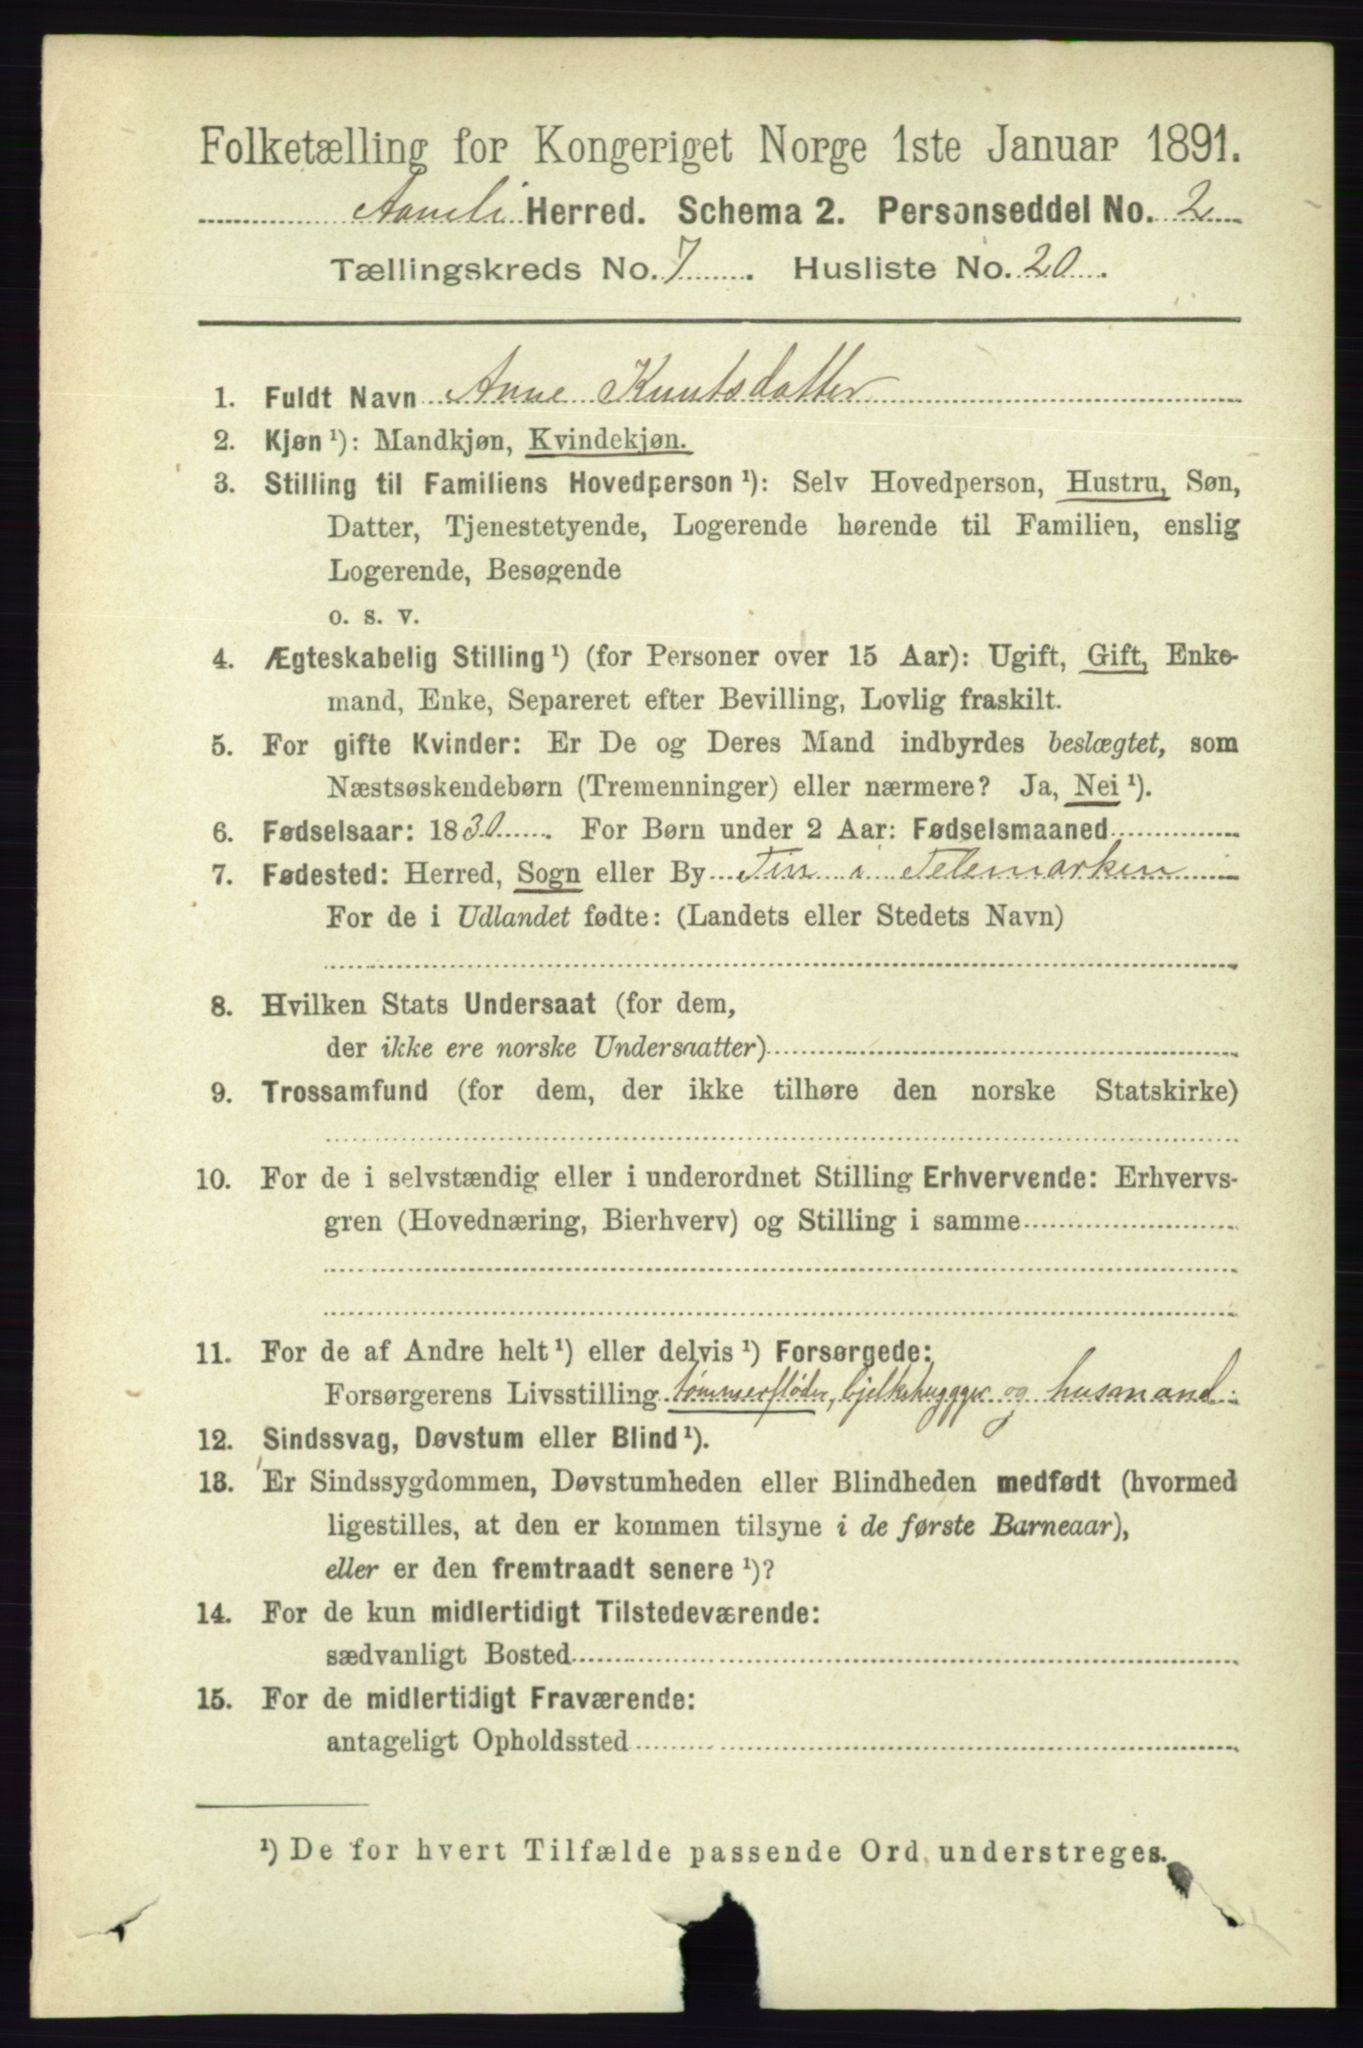 Folketælling for Kongeriget Norge 1ste Januar 1891.
Aamli Herred. Schema 2. Personseddel No. 2
Tællingskreds No. 7. Husliste No. 20.
1. Fuldt Navn Anne Knutsdatter
2. Kjøn ¹): Mandkjøn, Kvindekjøn.
3. Stilling til Familiens Hovedperson ¹): Selv Hovedperson, Hustru, Søn,
Datter, Tjenestetyende, Logerende hørende til Familien, enslig
Logerende, Besøgende
o. s. v.
4. Ægteskabelig Stilling ¹) (for Personer over 15 Aar): Ugift, Gift, Enke-
mand, Enke, Separeret efter Bevilling, Lovlig fraskilt.
5. For gifte Kvinder: Er De og Deres Mand indbyrdes beslægtet, som
Næstsøskendebørn (Tremenninger) eller nærmere? Ja, Nei ¹).
6. Fødselsaar: 1830. For Børn under 2 Aar: Fødselsmaaned
7. Fødested: Herred, Sogn eller By Tin i Telemarken
For de i Udlandet fødte: (Landets eller Stedets Navn)
8. Hvilken Stats Undersaat (for dem,
der ikke ere norske Undersaatter)
9. Trossamfund (for dem, der ikke tilhøre den norske Statskirke)
10. For de i selvstændig eller i underordnet Stilling Erhvervende: Erhvervs-
gren (Hovednæring, Bierhverv) og Stilling i samme
11. For de af Andre helt ¹) eller delvis ¹) Forsørgede:
Forsørgerens Livsstilling tømmerfløder, bjelkehugger og husmand
12. Sindssvag, Døvstum eller Blind ¹).
13. Er Sindssygdommen, Døvstumheden eller Blindheden medfødt (hvormed
ligestilles, at den er kommen tilsyne i de første Barneaar),
eller er den fremtraadt senere ¹)?
14. For de kun midlertidigt Tilstedeværende:
sædvanligt Bosted
15. For de midlertidigt Fraværende:
antageligt Opholdssted
¹) De for hvert Tilfælde passende Ord understreges.